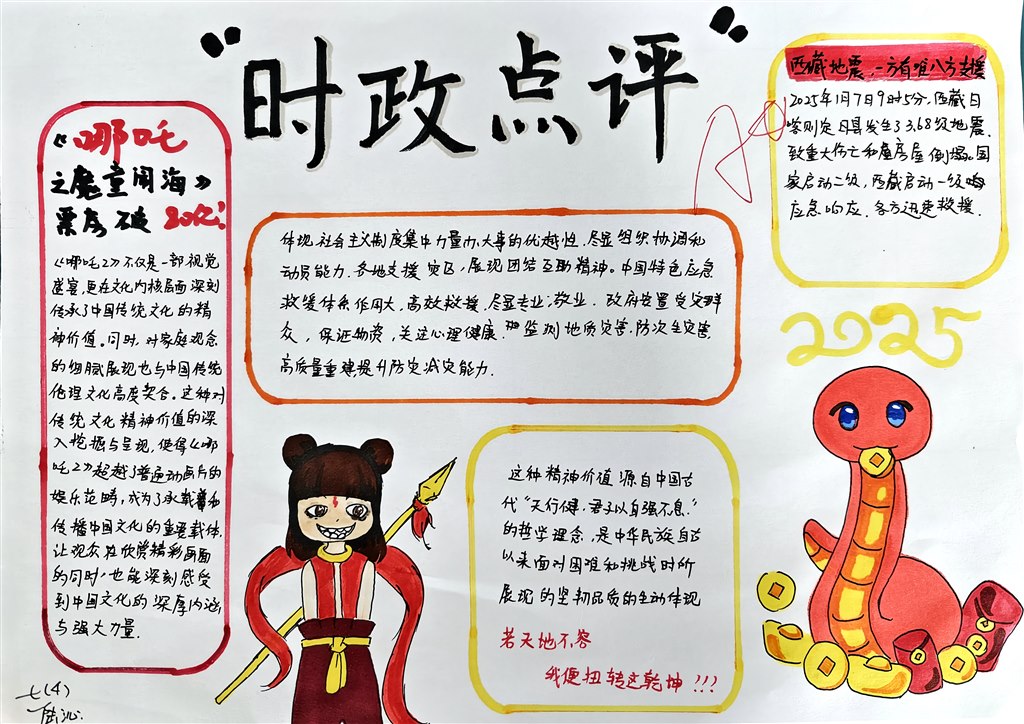 “时政点评”
《哪吒
之魔童闹海》
票房破20亿!
《哪吒2》不仅是一部视觉
盛宴,更在文化内核层面深刻
传承了中国传统文化的精
神价值。同时,对家庭观念
的细腻展现也与中国传统
伦理文化高度契合。这种对
传统文化精神价值的深
入挖掘与呈现,使得《哪
吒2》超越了普通动画片的
娱乐范畴,成为了承载着和
传播中国文化的重要载体.
让观众在欣赏精彩画面
的同时,也能深刻感受
到中国文化的深厚内涵
与强大力量.
七(4)
西藏地震,一方有难八方支援
2025年1月7日9时5分,西藏日
喀则定日县发生了3.68级地震.
致重大伤亡和房屋倒塌。国
家启动二级,西藏启动一级
应急响应.各方迅速救援.
体现社会主义制度集中力量办大事的优越性.尽显组织协调和
动员能力.各地支援灾区,展现团结互助精神。中国特色应急
救援体系作用大,高效救援.尽显专业,敬业.政府安置受灾群
众,保证物资,关注心理健康.监测地质灾害,防次生灾害.
高质量重建提升防灾减灾能力.
2025
这种精神价值源自中国古
代“天行健,君子以自强不息.”
的哲学理念,是中华民族自古
以来面对困难和挑战时所
展现的坚韧品质的生动体现
若天地不容
我便扭转这乾坤!!!